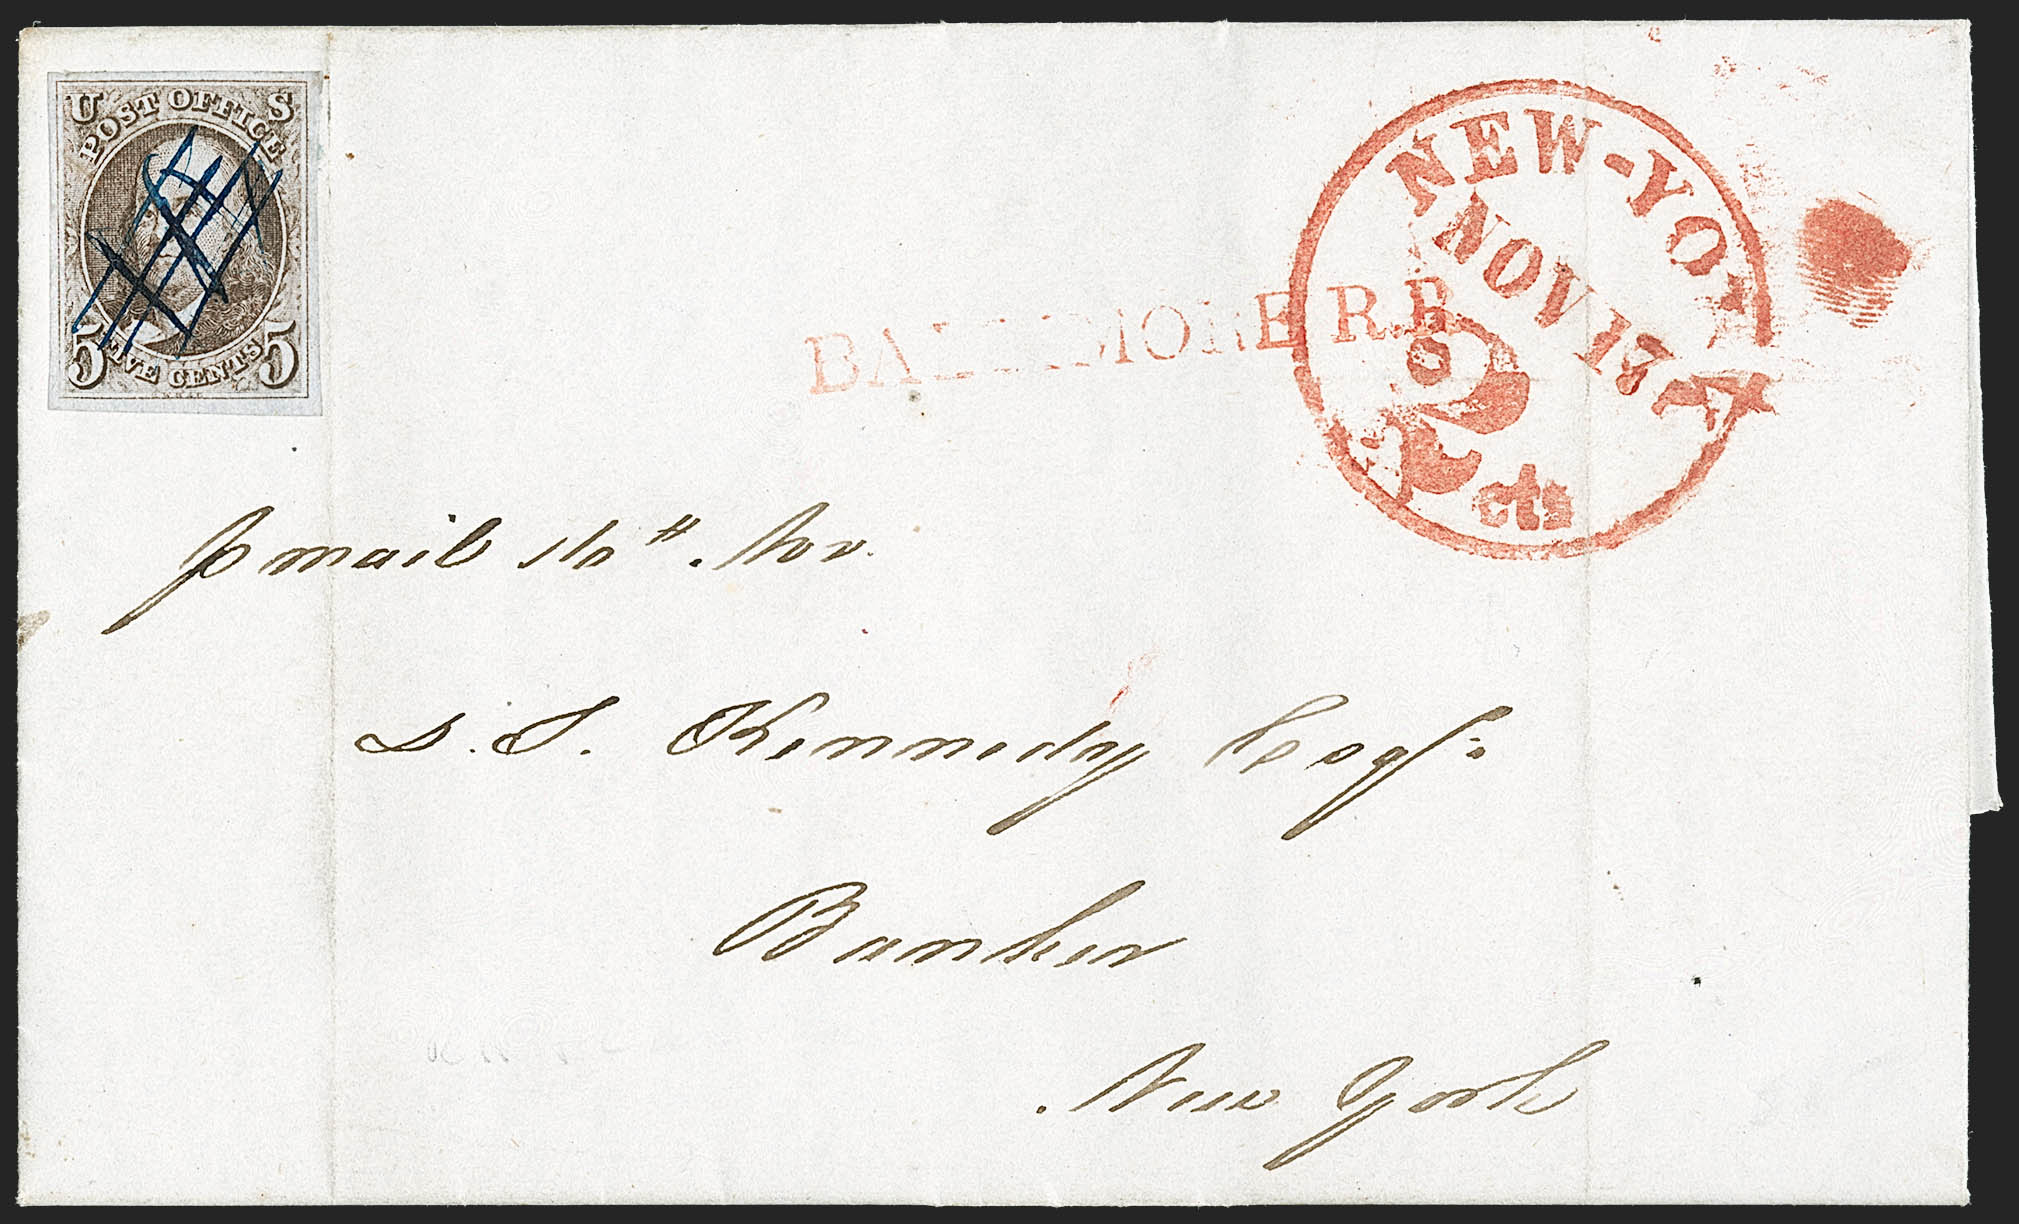 U S
POST OFFICE
FIVE CENTS
5 5
BALTIMORE R.R.
NEW-YO
NOV 17
2 cts
p mail 16th Nov.
D. S. Kennedy Esqr.
Banker
New York